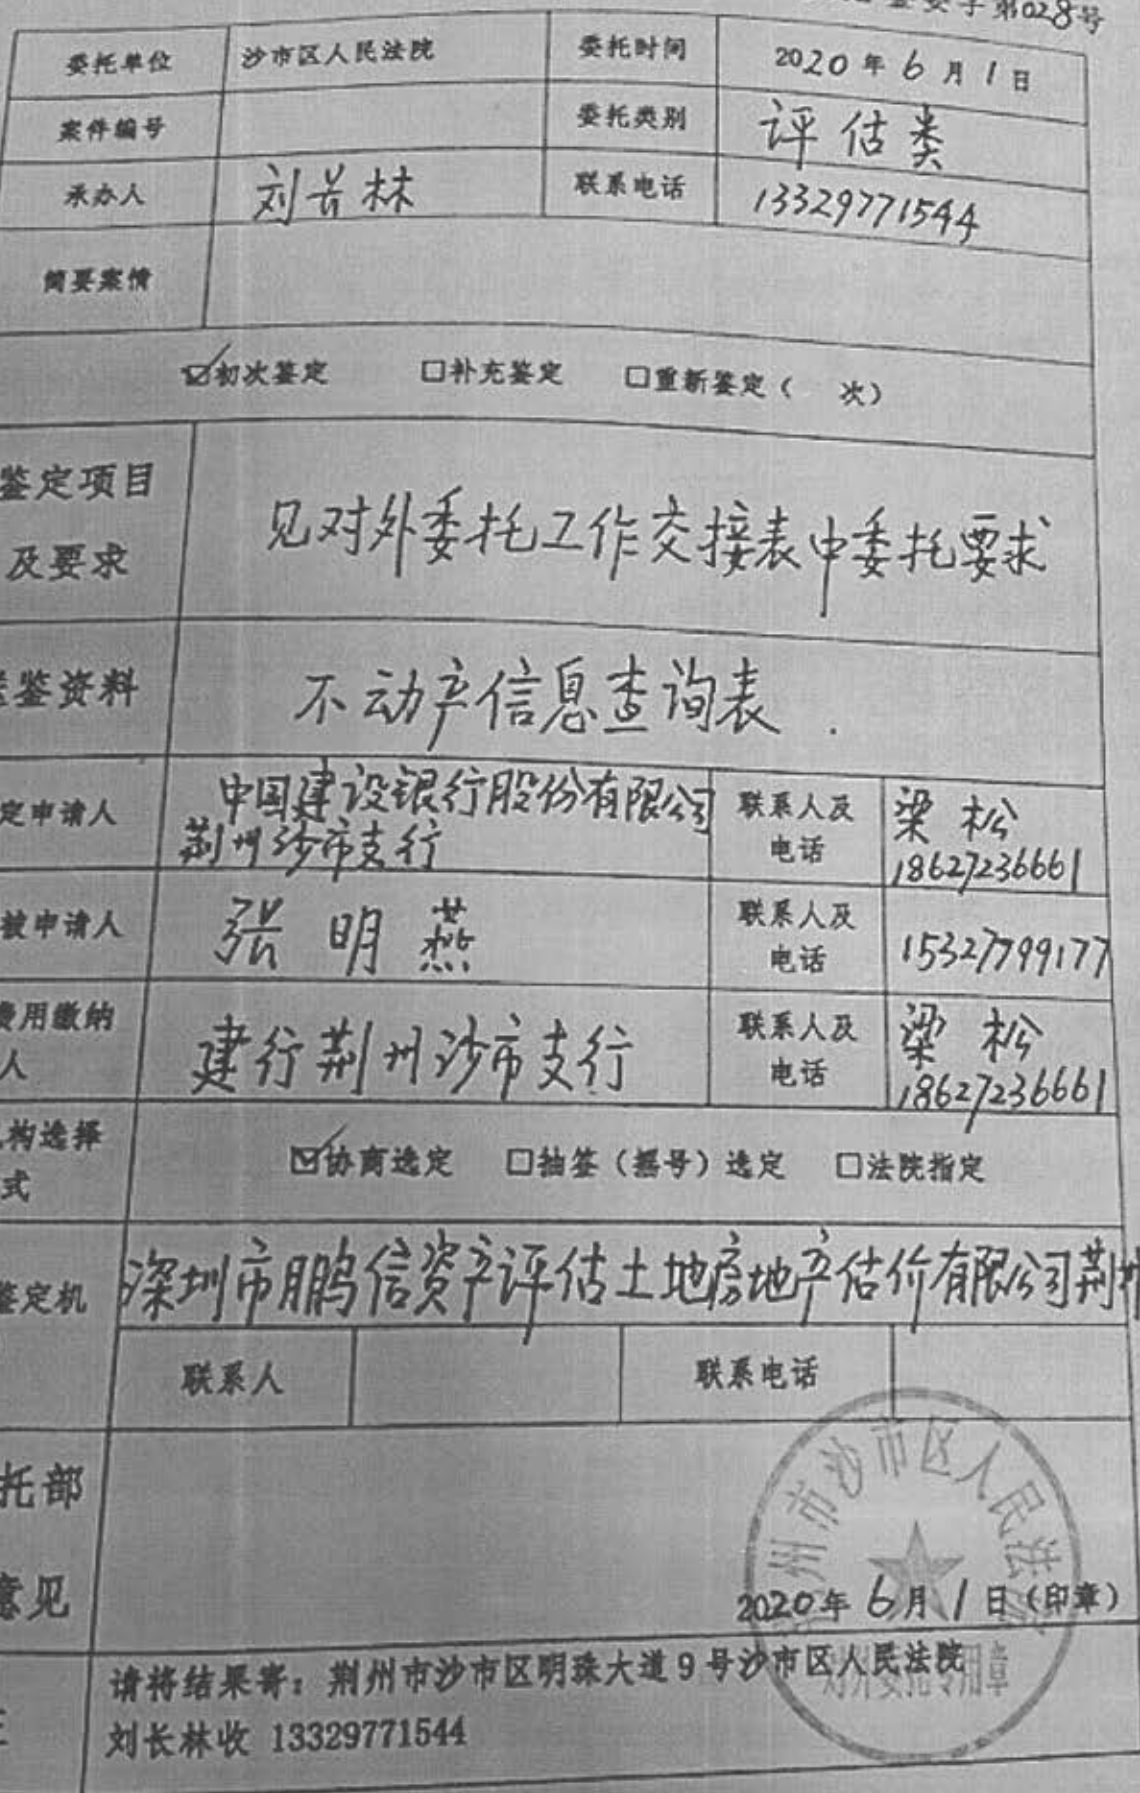 委字第028号
委托单位 沙市区人民法院 委托时间 2020年6月1日
案件编号 委托类别 评估类
承办人 刘长林 联系电话 13329771544
简要案情
☑初次鉴定 □补充鉴定 □重新鉴定（ 次）
鉴定项目
及要求
见对外委托工作交接表中委托要求
鉴资料 不动产信息查询表.
定申请人
中国建设银行股份有限公司
荆州沙市支行
联系人及
电话
梁松
18627236661
被申请人 张明燕
联系人及
电话
15327799177
费用缴纳
人
建行荆州沙市支行
联系人及
电话
梁松
18627236661
构选择
式
☑协商选定 □抽签（摇号）选定 □法院指定
鉴定机 深圳市鹏信资产评估土地房地产估价有限公司荆州
联系人 联系电话
托部
意见
州市沙市区人民法院
2020年6月1日（印章）
对外委托专用章
请将结果寄：荆州市沙市区明珠大道9号沙市区人民法院
刘长林收 13329771544